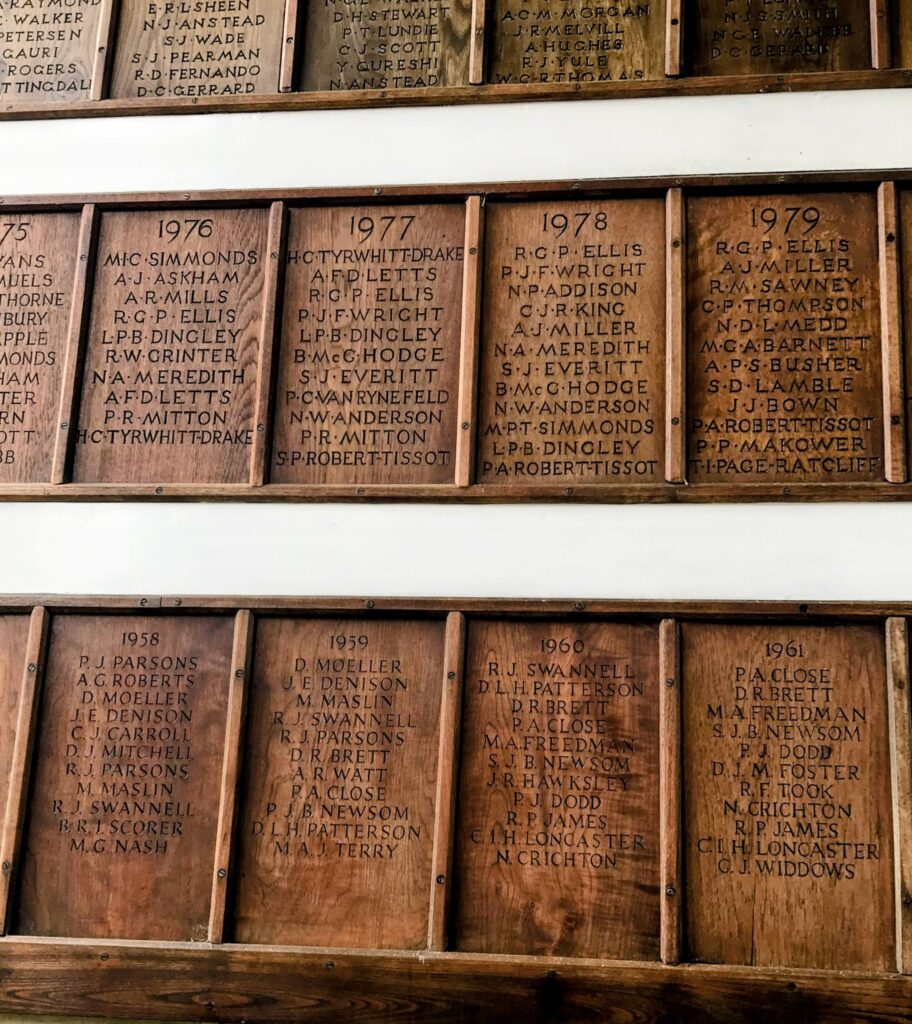 RAYMOND
WALKER
PETERSEN
GAURI
ROGERS
E·R·L·SHEEN
N·J·ANSTEAD
S·J·WADE
S·J·PEARMAN
R·D·FERNANDO
D·C·GERRARD
D·H·STEWART
P·T·LUNDIE
C·J·SCOTT
Y·QURESHI
N·ANSTEAD
A·C·M·MORGAN
J·R·MELVILL
A·HUGHES
R·J·YULE
W·G·R·THOMAS
N·J·S·SMITH
D·C·GERARD
75
VANS
MUELS
THORNE
BURY
APPLE
MONDS
HAM
TER
RN
OTT
BB
1976
M·C·SIMMONDS
A·J·ASKHAM
A·R·MILLS
R·G·P·ELLIS
L·P·B·DINGLEY
R·W·GRINTER
N·A·MEREDITH
A·F·D·LETTS
P·R·MITTON
H·C·TYRWHITT-DRAKE
1977
H·C·TYRWHITT-DRAKE
A·F·D·LETTS
R·G·P·ELLIS
P·J·F·WRIGHT
L·P·B·DINGLEY
B·McG·HODGE
S·J·EVERITT
P·C·VAN RYNEFELD
N·W·ANDERSON
P·R·MITTON
S·P·ROBERT-TISSOT
1978
R·G·P·ELLIS
P·J·F·WRIGHT
N·P·ADDISON
C·J·R·KING
A·J·MILLER
N·A·MEREDITH
S·J·EVERITT
B·McG·HODGE
N·W·ANDERSON
M·P·T·SIMMONDS
L·P·B·DINGLEY
P·A·ROBERT-TISSOT
1979
R·G·P·ELLIS
A·J·MILLER
R·M·SAWNEY
C·P·THOMPSON
N·D·L·MEDD
M·C·A·BARNETT
A·P·S·BUSHER
S·D·LAMBLE
J·J·BOWN
P·A·ROBERT-TISSOT
P·P·MAKOWER
T·I·PAGE-RATCLIFF
1958
P. J. PARSONS
A. G. ROBERTS
D. MOELLER
J. E. DENISON
C. J. CARROLL
D. J. MITCHELL
R. J. PARSONS
M. MASLIN
R. J. SWANNELL
B. R. I. SCORER
M. G. NASH
1959
D. MOELLER
J. E. DENISON
M. MASLIN
R. J. SWANNELL
R. J. PARSONS
D. R. BRETT
A. R. WATT
P. A. CLOSE
P. J. B. NEWSOM
D. L. H. PATTERSON
M. A. J. TERRY
1960
R. J. SWANNELL
D. L. H. PATTERSON
D. R. BRETT
P. A. CLOSE
M. A. FREEDMAN
S. J. B. NEWSOM
J. R. HAWKSLEY
P. J. DODD
R. P. JAMES
C. I. H. LONCASTER
N. CRICHTON
1961
P. A. CLOSE
D. R. BRETT
M. A. FREEDMAN
S. J. B. NEWSOM
P. J. DODD
D. J. M. FOSTER
R. F. TOOK
N. CRICHTON
R. P. JAMES
C. I. H. LONCASTER
G. J. WIDDOWS